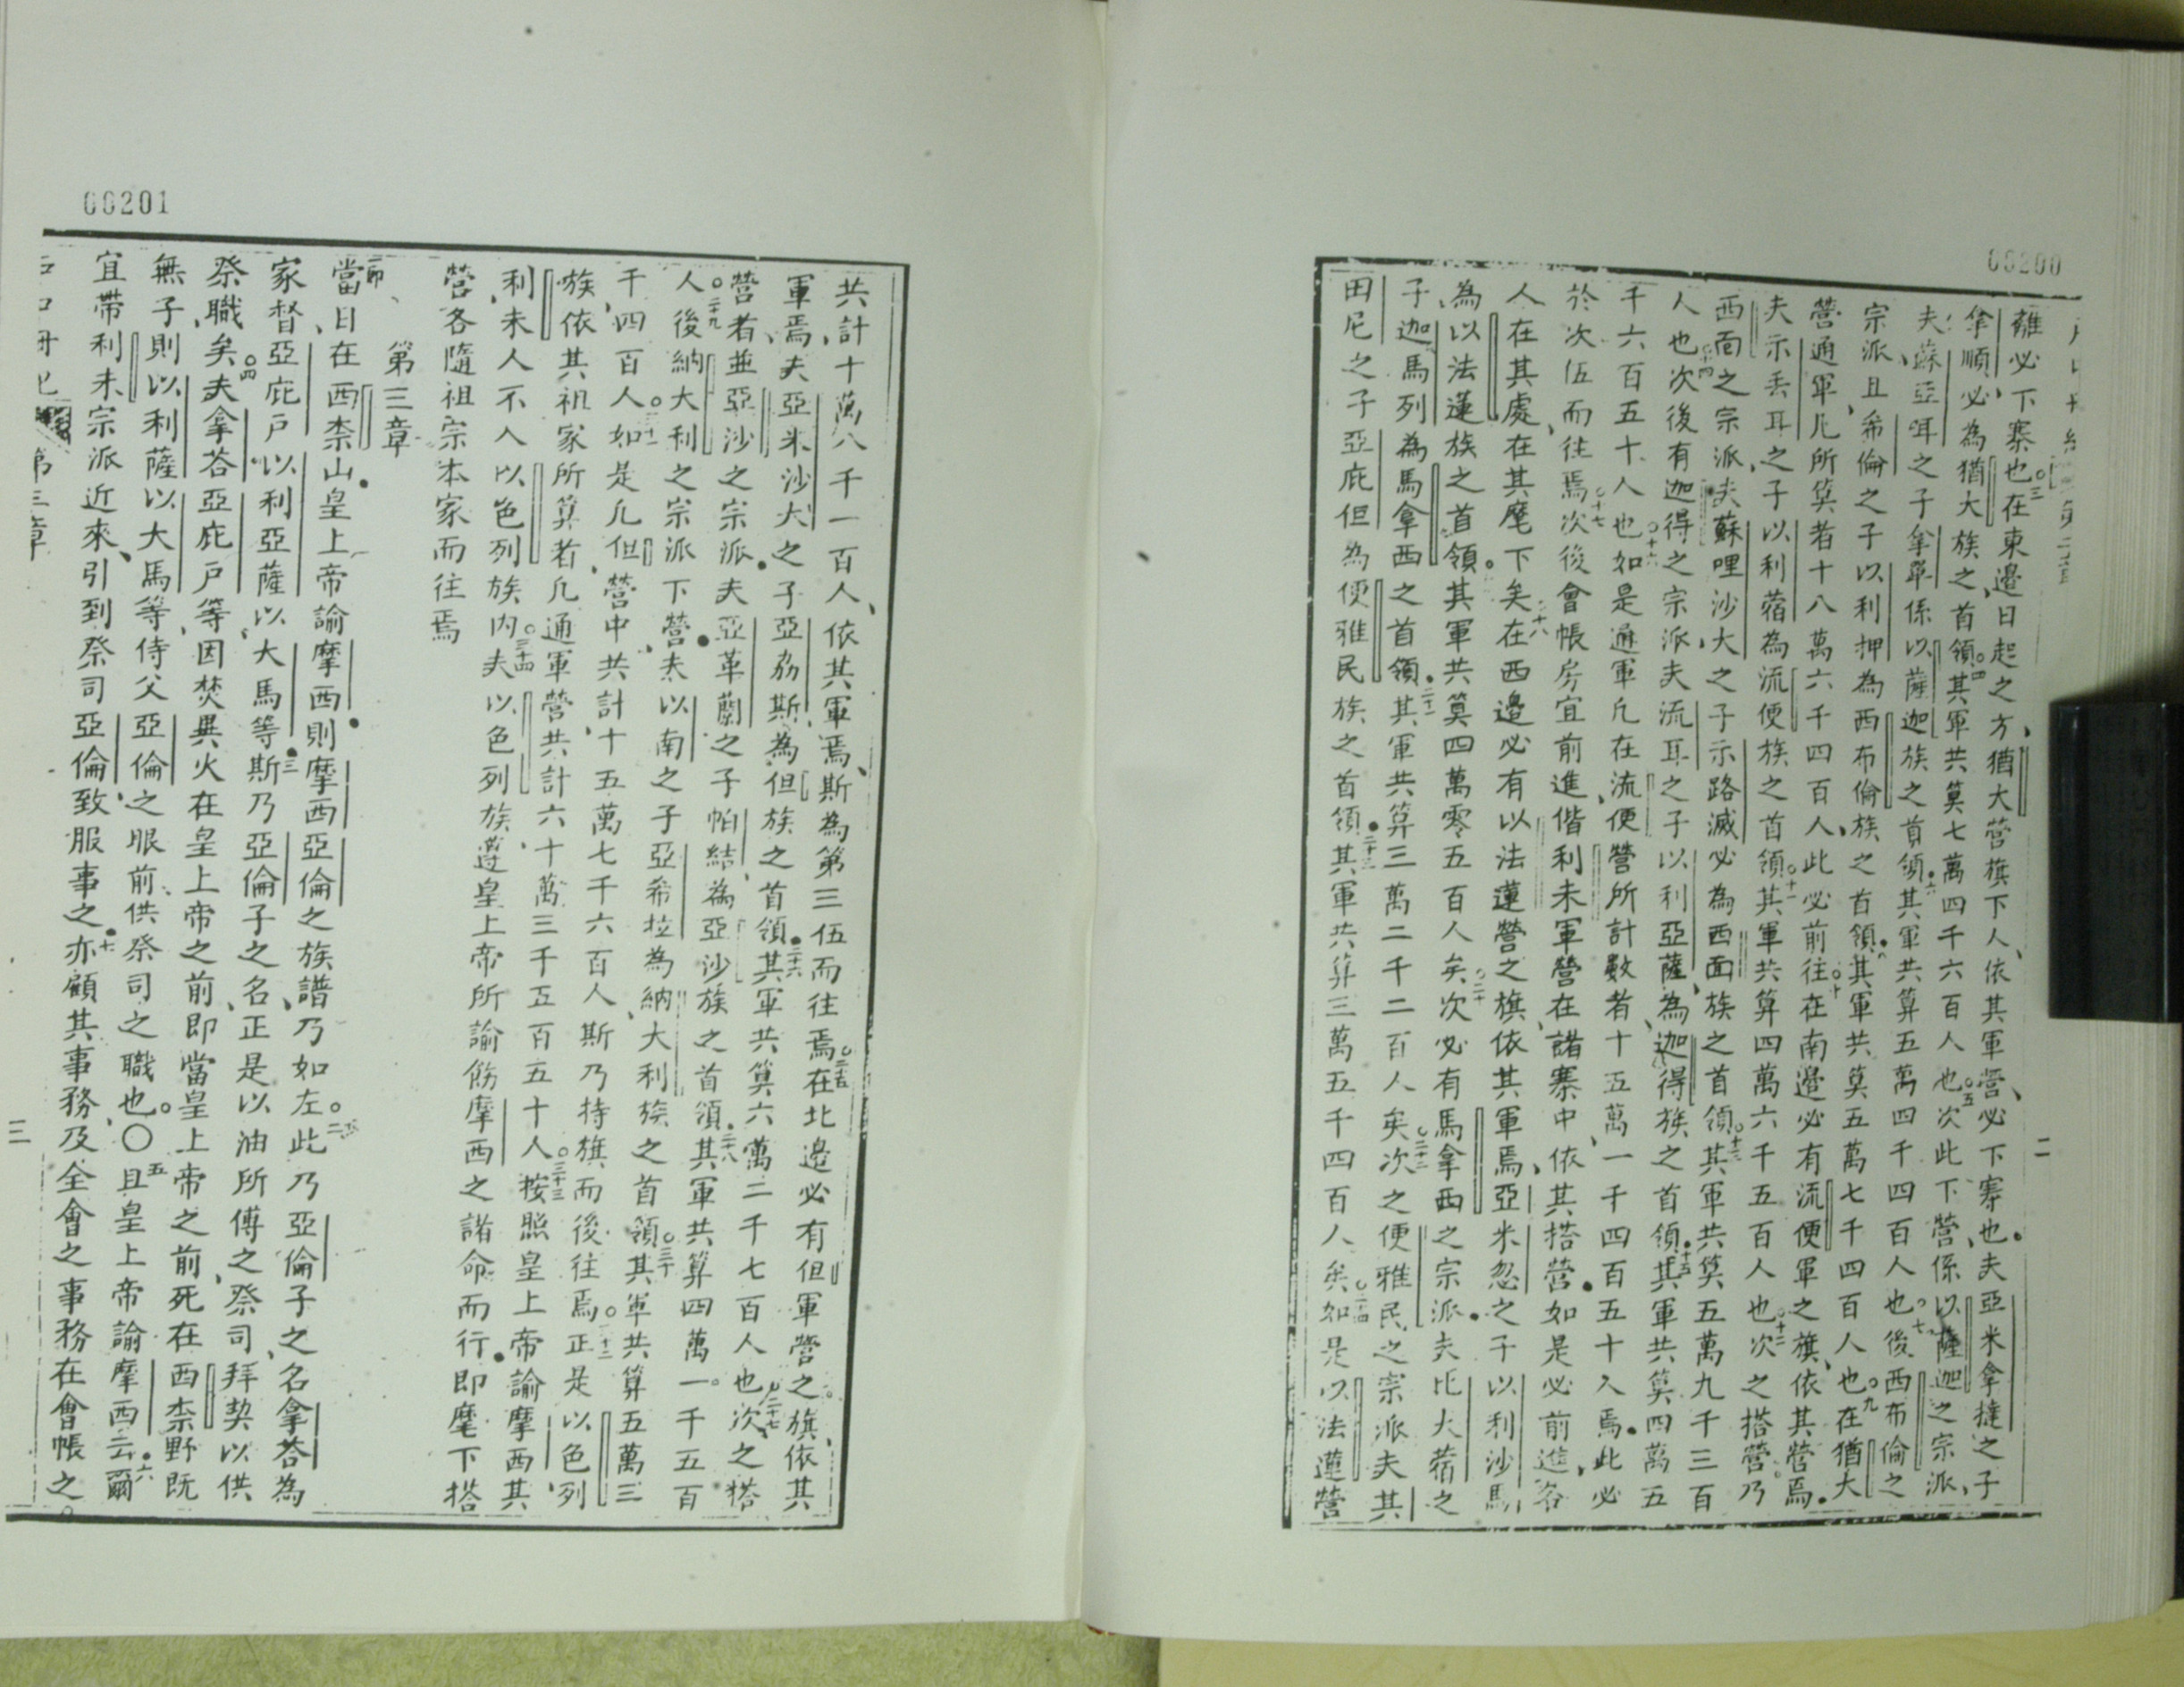 00200
離必下寨也。三在東邊日起之方、猶大營旗下人、依其軍營、必下寨也。夫亞米拿撻之子
拿順、必為猶大族之首領。四其軍共算七萬四千六百人也。五次此下營、係以薩迦之宗派、
夫蘇亞咡之子拿單係以薩迦族之首領。六其軍共算五萬四千四百人也。七後西布倫之
宗派、且希倫之子以利押為西布倫族之首領。八其軍共算五萬七千四百人也。九在猶大
營通軍凡所算者十八萬六千四百人、此必前往。十在南邊必有流便軍之旗、依其營焉。
夫示丟耳之子以利蓿為流便族之首領。十一其軍共算四萬六千五百人也。十二次之搭營、乃
西面之宗派、夫蘇哩沙大之子示路滅必為西面族之首領。十三其軍共算五萬九千三百
人也。十四次後有迦得之宗派、夫流耳之子以利亞薩、為迦得族之首領。十五其軍共算四萬五
千六百五十人也。十六如是通軍凡在流便營所計數者十五萬、一千四百五十人焉。此必
於次伍而往焉。十七次後會帳房宜前進、偕利未軍營、在諸寨中、依其搭營。如是必前進、各
人在其處、在其麾下矣。十八在西邊必有以法蓮營之旗、依其軍焉、亞米忽之子以利沙馬
為以法蓮族之首領。其軍共算四萬零五百人矣。二十次必有馬拿西之宗派。夫比大蓿之
子、迦馬列為馬拿西之首領。二十一其軍共算三萬二千二百人矣。二十二次之便雅民之宗派、夫其
田尼之子亞庇但為便雅民族之首領。二十三其軍共算三萬五千四百人矣。二十四如是以法蓮營
二
00201
共計十萬八千一百人、依其軍焉、斯為第三伍而往焉。二十五在北邊必有但軍營之旗、依其
軍焉、夫亞米沙大之子亞希斯、為但族之首領。二十六其軍共算六萬二千七百人也。二十七次之搭
營者、並亞沙之宗派。夫亞革蘭之子帕結、為亞沙族之首領。二十八其軍共算四萬一千五百
人。二十九後納大利之宗派下營、夫以南之子亞希拉為納大利族之首領。三十其軍共算五萬三
千四百人。三十一如是凡但營中、共計、十五萬七千六百人、斯乃持旗而後往焉。三十二正是以色列
族、依其祖家所算者、凡通軍營、共計六十萬三千五百五十人。三十三按照皇上帝諭摩西、其
利未人不入以色列族內。三十四夫以色列族、遵皇上帝所諭飭摩西之諸命而行。即麾下搭
營、各隨祖宗本家而往焉
第三章
一節當日、在西柰山、皇上帝諭摩西、則摩西亞倫之族譜、乃如左。二此乃亞倫子之名、拿荅為
家督、亞庇戶以利亞薩、以大馬等。三斯乃亞倫子之名、正是以油所傅之祭司、拜契以供
祭職矣。四夫拿荅亞庇戶等、因焚異火在皇上帝之前、即當皇上帝之前、死在西柰野、既
無子、則以利薩以大馬等、侍父亞倫之眼前、供祭司之職也。〇五且皇上帝諭摩西云。六爾
宜帶利未宗派近來、引到祭司亞倫、致服事之。七亦顧其事務、及全會之事務、在會帳之
第三章
三